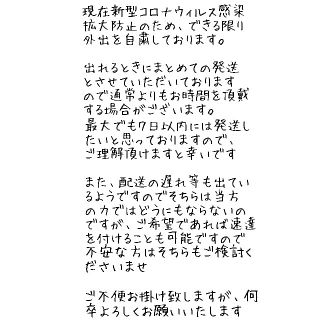 現在新型コロナウィルス感染
拡大防止のため、できる限り
外出を自粛しております。
出れるときにまとめての発送
とさせていただいております
ので通常よりもお時間を頂戴
する場合がございます。
最大でも7日以内には発送し
たいと思っておりますので、
ご理解頂けますと幸いです
また、配送の遅れ等も出てい
るようですのでそちらは当方
の力ではどうにもならないの
ですが、ご希望であれば速達
を付けることも可能ですので
不安な方はそちらもご検討く
ださいませ
ご不便お掛け致しますが、何
卒よろしくお願いいたします